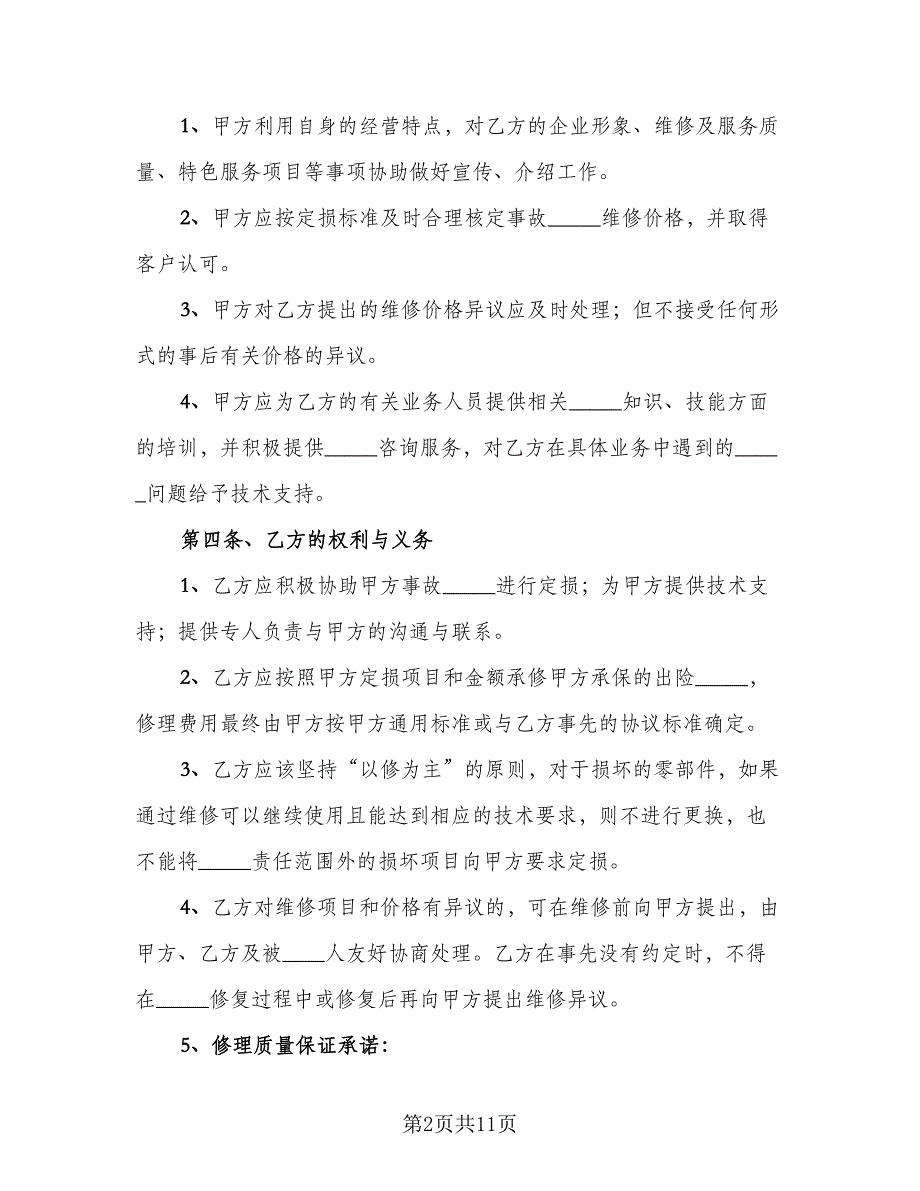 1、甲方利用自身的经营特点，对乙方的企业形象、维修及服务质
量、特色服务项目等事项协助做好宣传、介绍工作。
2、甲方应按定损标准及时合理核定事故_____维修价格，并取得
客户认可。
3、甲方对乙方提出的维修价格异议应及时处理；但不接受任何形
式的事后有关价格的异议。
4、甲方应为乙方的有关业务人员提供相关_____知识、技能方面
的培训，并积极提供_____咨询服务，对乙方在具体业务中遇到的____
_问题给予技术支持。
第四条、乙方的权利与义务
1、乙方应积极协助甲方事故_____进行定损；为甲方提供技术支
持；提供专人负责与甲方的沟通与联系。
2、乙方应按照甲方定损项目和金额承修甲方承保的出险_____，
修理费用最终由甲方按甲方通用标准或与乙方事先的协议标准确定。
3、乙方应该坚持“以修为主”的原则，对于损坏的零部件，如果
通过维修可以继续使用且能达到相应的技术要求，则不进行更换，也
不能将_____责任范围外的损坏项目向甲方要求定损。
4、乙方对维修项目和价格有异议的，可在维修前向甲方提出，由
甲方、乙方及被____人友好协商处理。乙方在事先没有约定时，不得
在_____修复过程中或修复后再向甲方提出维修异议。
5、修理质量保证承诺：
第2页共11页